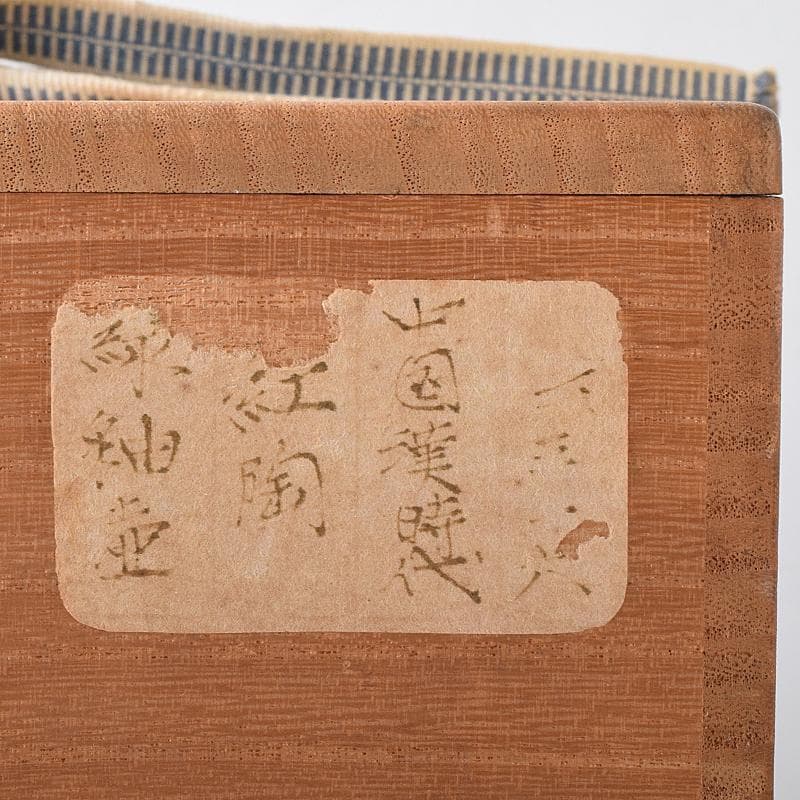 中国漢時代
紅陶
綠釉壷